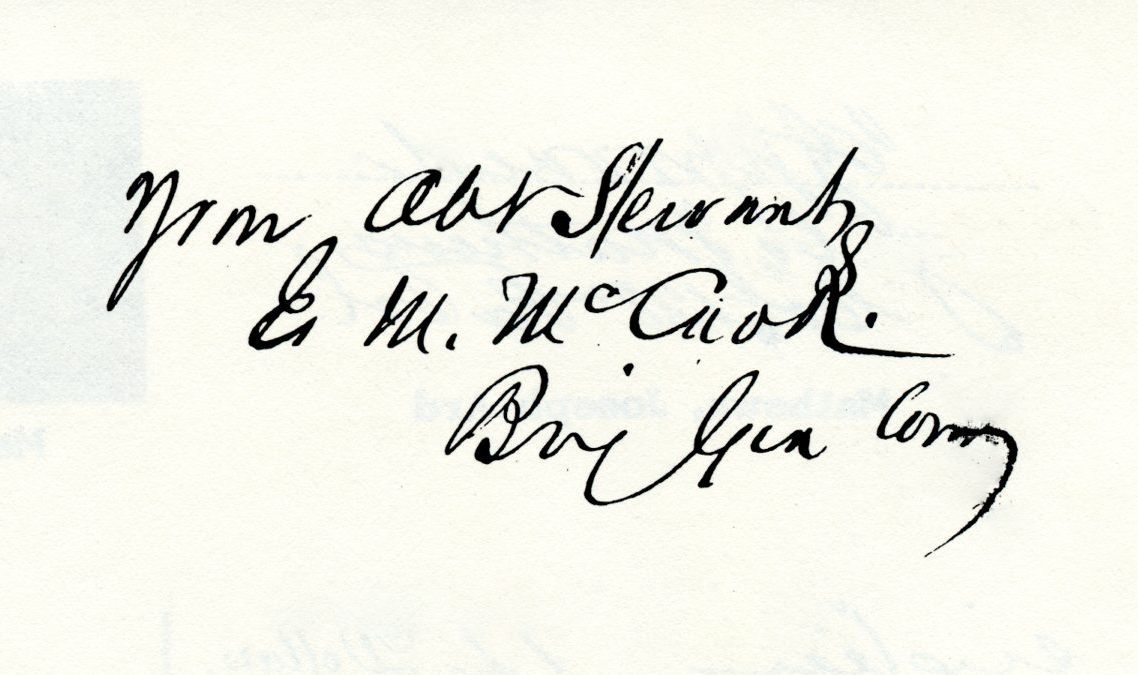 Your Obt Servant,
Ed M. McCook.
Brig Gen Comg